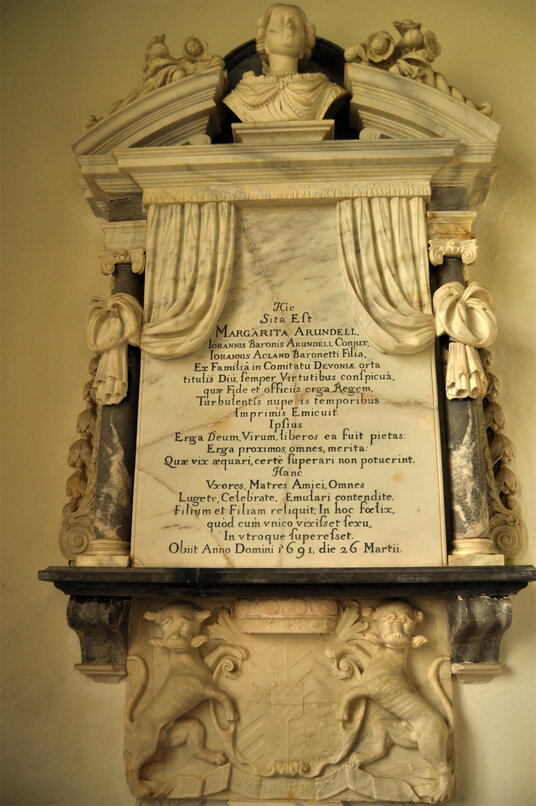 Hic
Sita Eſt
MARGARITA ARUNDELL,
IOHANNIS BARONIS ARUNDELL CONJUX,
IOHANNIS ACLAND BARONETTI FILIA,
EX FAMILIA in COMITATU DEVONIÆ orta
titulis Diù, ſemper Virtutibus conſpicuâ,
quæ Fide et officiis erga Regem,
Turbulentis nupe is temporibus
Imprimis Emicuit.
Ipſius
Erga Deum, Virum, liberos ea fuit pietas:
Erga proximos, omnes, merita:
Quæ vix æquari, certè ſuperari non potuerint.
Hanc
Vxores, Matres Amici, Omnes
Lugete, Celebrate, Emulari contendite.
Filium et Filiam reliquit; In hoc fœlix,
quod cum vnico vixiſset ſexu,
In vtroque ſupereſset.
Obiit Anno Domini 1691, die 26 Martii.